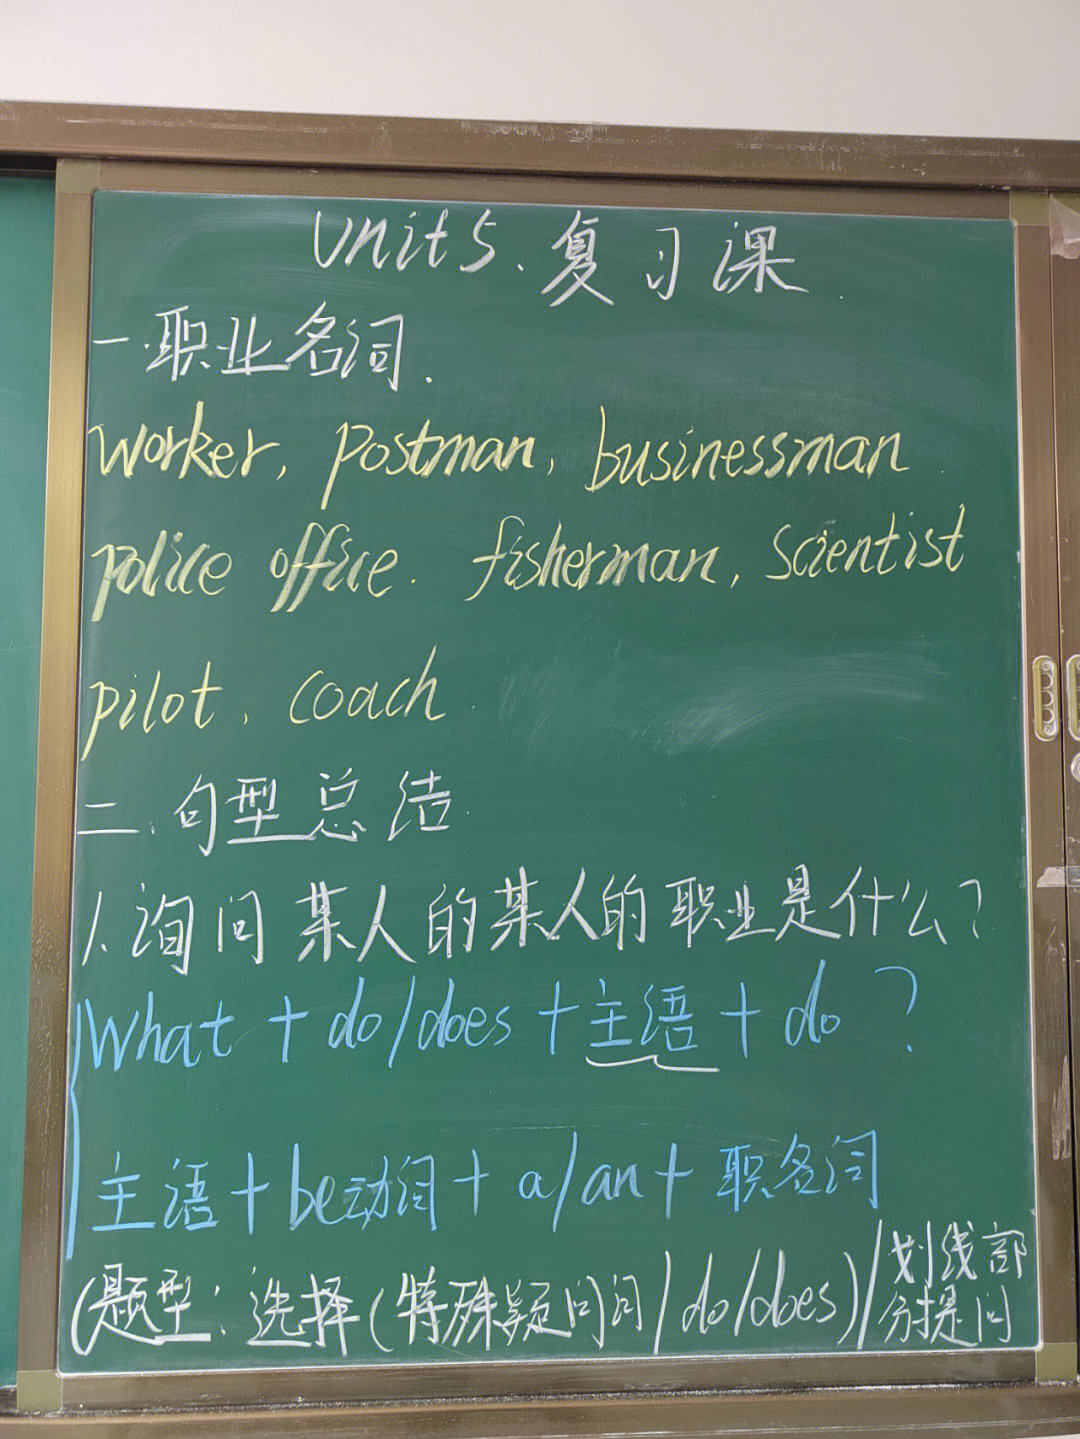 Unit5.复习课
一.职业名词.
worker, postman, businessman
police office. fisherman, scientist
pilot, coach
二.句型总结
1.询问某人的某人的职业是什么?
What + do/does + 主语 + do ?
主语 + be动词 + a/an + 职名词
(题型:选择(特殊疑问词/do/does)/划线部分提问